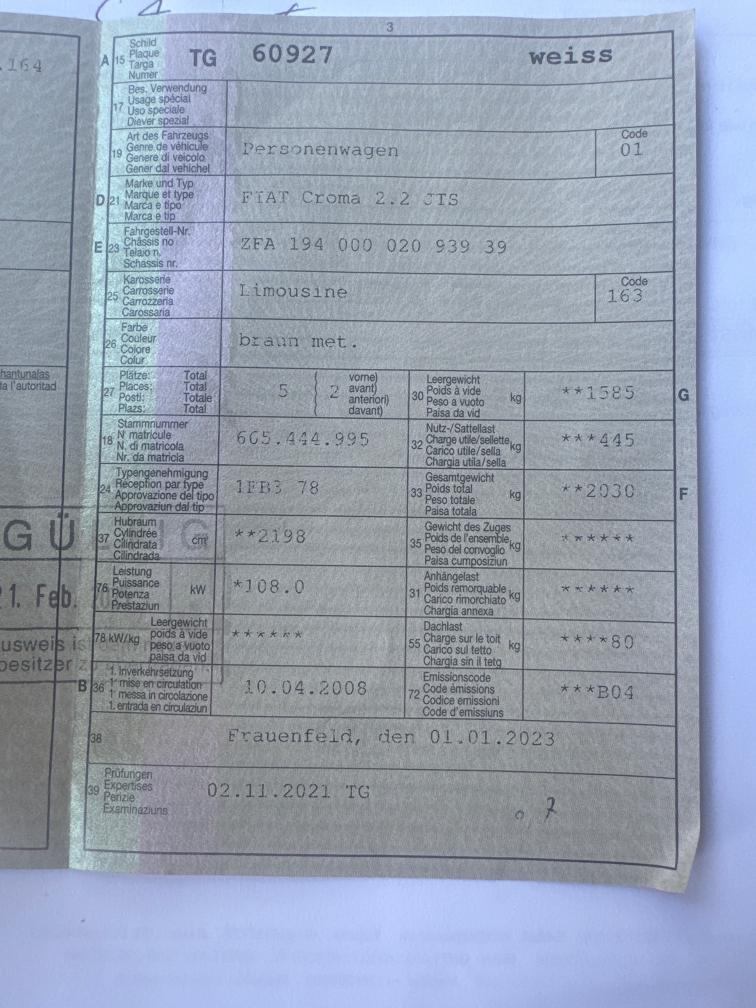 3
.164
A 15 Schild Plaque Targa Numer TG 60927 weiss
17 Bes. Verwendung Usage spécial Uso speciale Diever spezial
19 Art des Fahrzeugs Genre de véhicule Genere di veicolo Gener dal vehichel Personenwagen Code 01
D 21 Marke und Typ Marque et type Marca e tipo Marca e tip FIAT Croma 2.2 JTS
E 23 Fahrgestell-Nr. Châssis no Telaio n. Schassis nr. ZFA 194 000 020 939 39
25 Karosserie Carrosserie Carrozzeria Carossaria Limousine Code 163
26 Farbe Couleur Colore Colur braun met.
hantunalas
a l'autoritad
27 Plätze: Places: Posti: Plazs: Total Total Totale Total 5 2 vorne) avant) anteriori) davant)
30 Leergewicht Poids à vide Peso a vuoto Paisa da vid kg **1585 G
18 Stammnummer N° matricule N. di matricola Nr. da matricla 665.444.995
32 Nutz-/Sattellast Charge utile/sellette Carico utile/sella Chargia utila/sella kg ***445
24 Typengenehmigung Réception par type Approvazione del tipo Approvaziun dal tip 1FB3 78
33 Gesamtgewicht Poids total Peso totale Paisa totala kg **2030 F
GÜ G
37 Hubraum Cylindrée Cilindrata Cilindrada cm³ **2198
35 Gewicht des Zuges Poids de l'ensemble Peso del convoglio Paisa cumposiziun kg ******
1. Feb.
76 Leistung Puissance Potenza Prestaziun kW *108.0
31 Anhängelast Poids remorquable Carico rimorchiato Chargia annexa kg ******
usweis is
besitzer z
78 kW/kg Leergewicht poids à vide peso a vuoto paisa da vid ******
55 Dachlast Charge sur le toit Carico sul tetto Chargia sin il tetg kg ****80
B 36 1. Inverkehrsetzung 1re mise en circulation 1a messa in circolazione 1. entrada en circulaziun 10.04.2008
72 Emissionscode Code émissions Codice emissioni Code d'emissiuns ***B04
38 Frauenfeld, den 01.01.2023
39 Prüfungen Expertises Perizie Examinaziuns 02.11.2021 TG